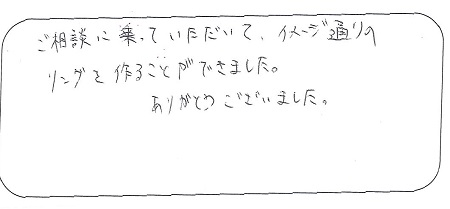 ご相談に乗っていただいて、イメージ通りの
リングを作ることができました。
ありがとうございました。